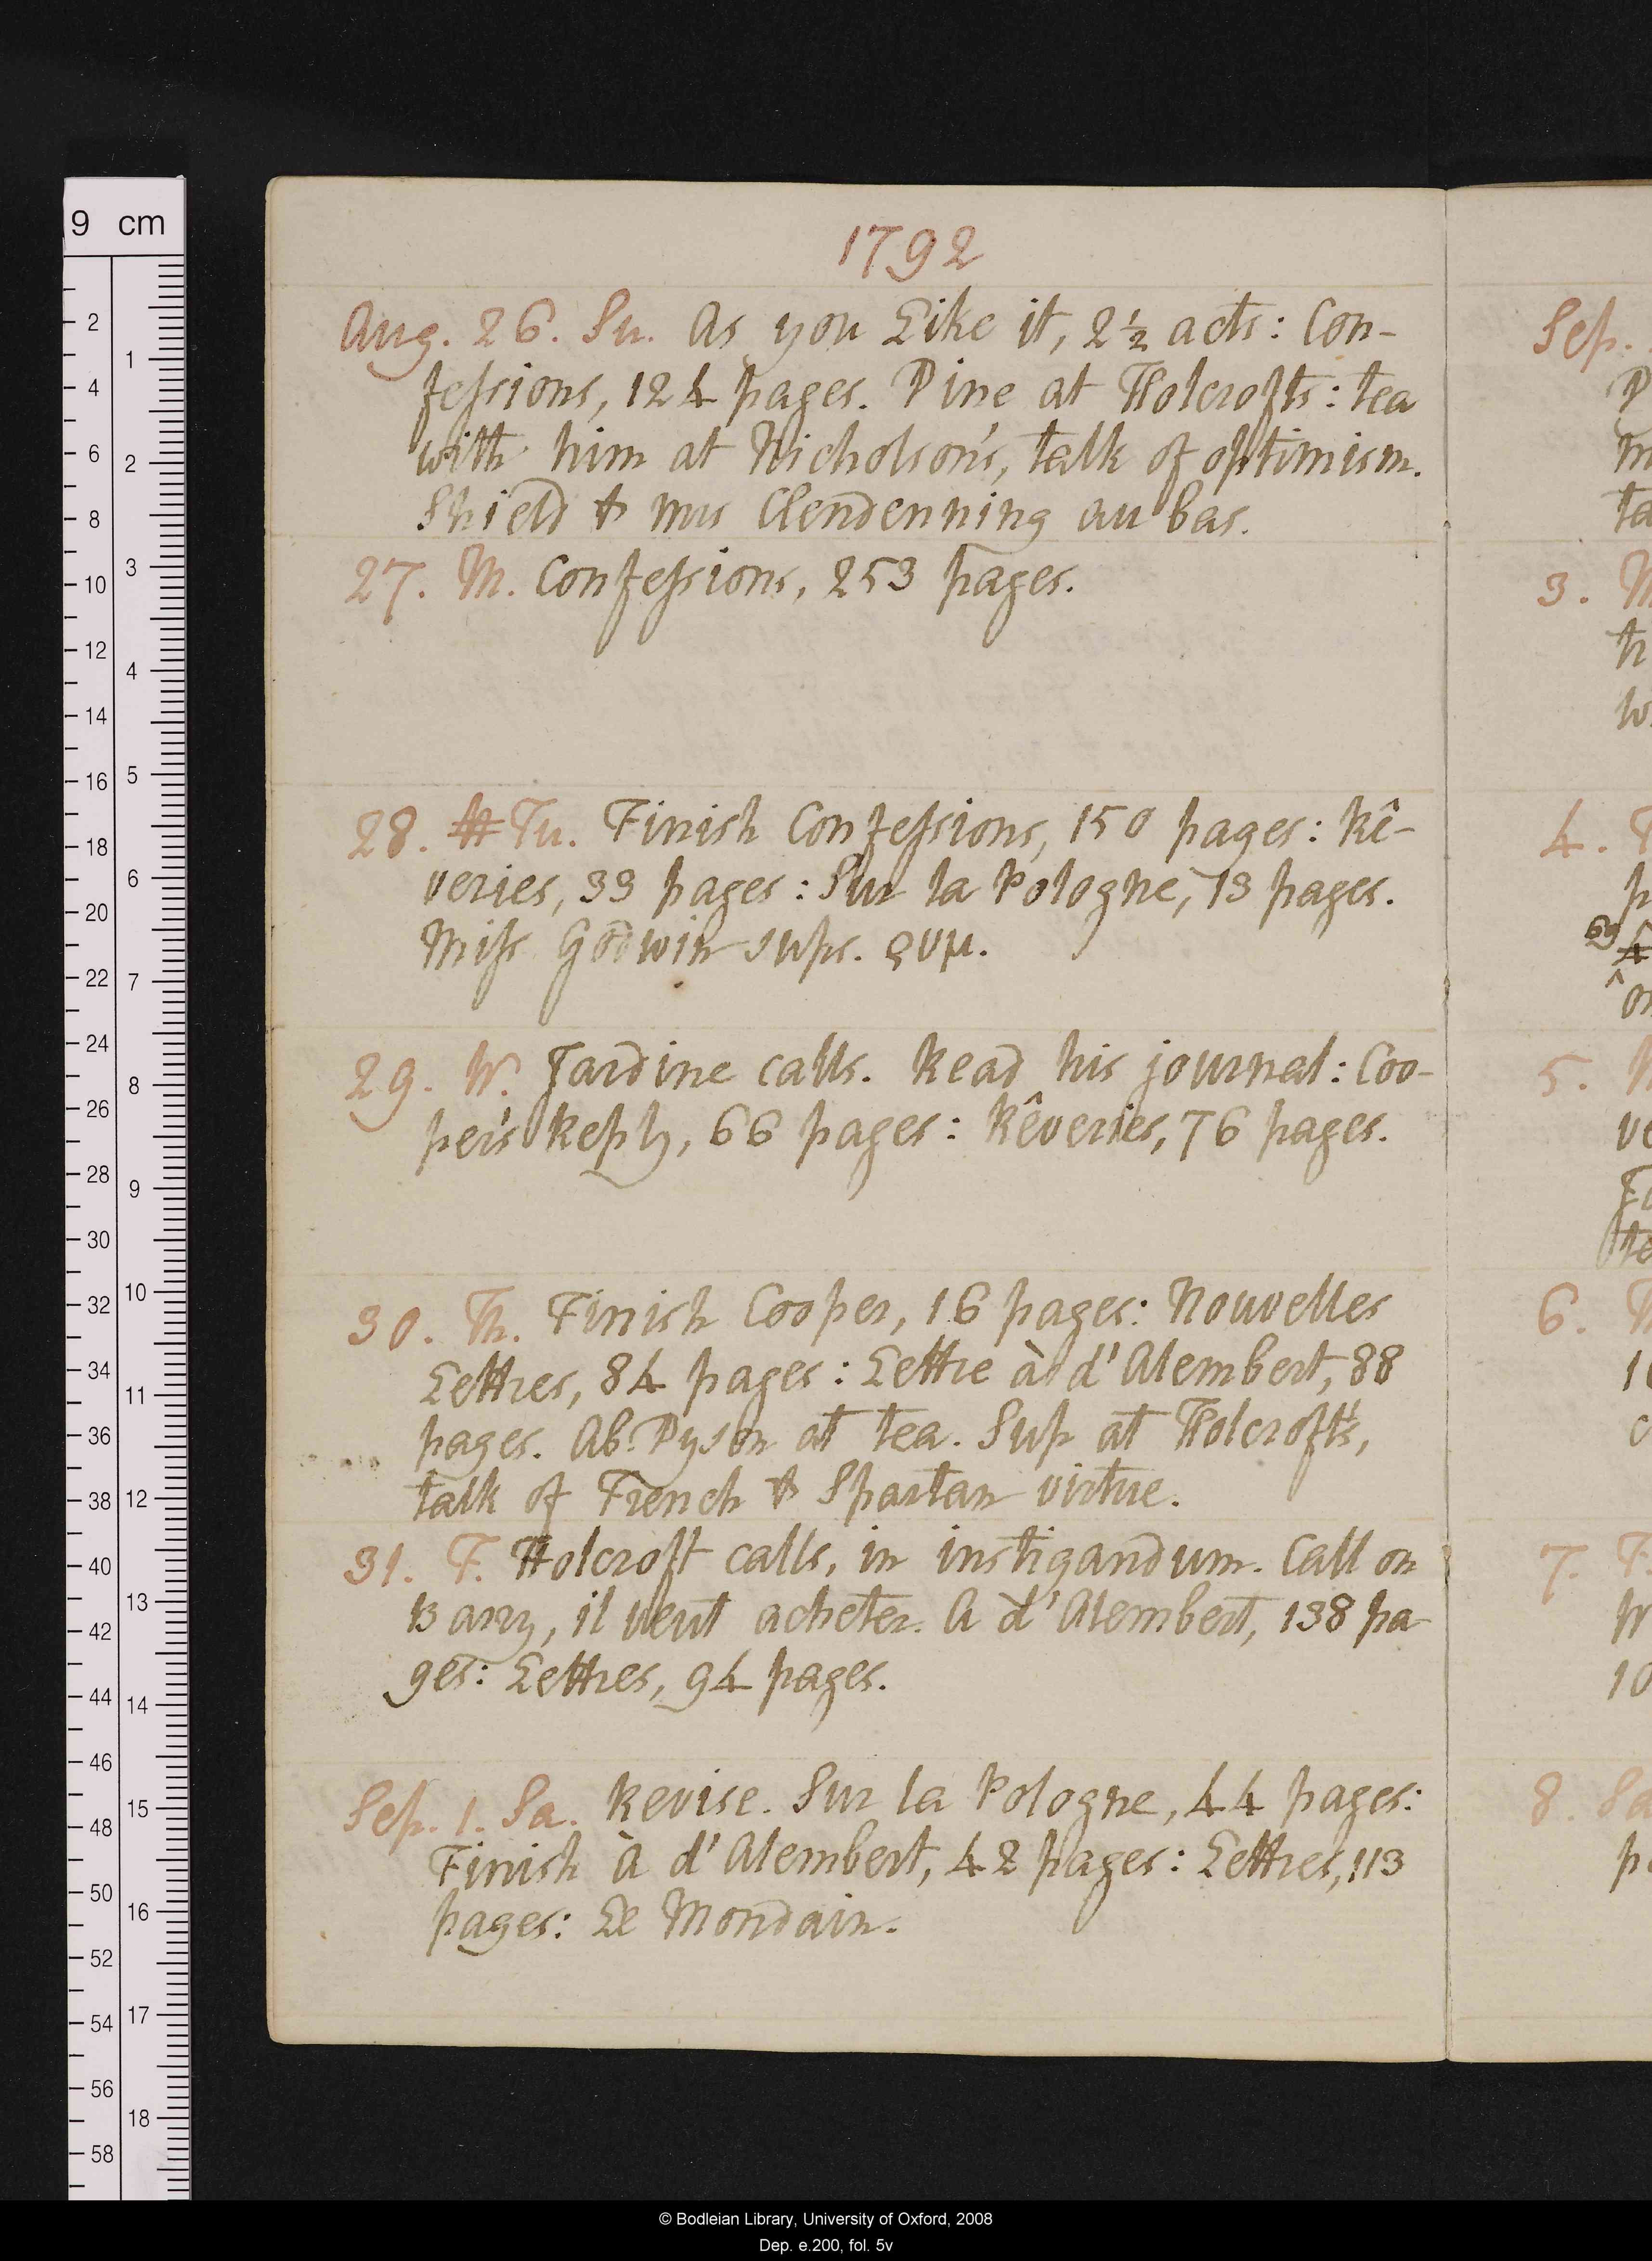 1792
Aug. 26. Su. As you Like it, 2½ acts: Con-
fessions, 124 pages. Dine at Holcrofts: tea
with him at Nicholson's, talk of optimism.
Shield & mrs Clendenning au bas.
27. M. Confessions, 253 pages.
28. Tu. Finish Confessions, 150 pages: Rê-
veries, 33 pages: Sur la Pologne, 13 pages.
Miss Godwin sups. ςνμ.
29. W. Jardine calls. Read his journal: Coo-
per's Reply, 66 pages: Rêveries, 76 pages.
30. Th. Finish Cooper, 16 pages: Nouvelles
Lettres, 84 pages: Lettre à d'Alembert, 88
pages. Ab. Dyson at tea. Sup at Holcroft's,
talk of French & Spartan virtue.
31. F. Holcroft calls, in instigandum. Call on
Barry, il veut acheter. A d'Alembert, 138 pa-
ges: Lettres, 94 pages.
Sep. 1. Sa. Revise. Sur la Pologne, 44 pages:
Finish à d'Alembert, 42 pages: Lettres, 113
pages: Le Mondain.
Sep.
3. M
4. T
5.
6.
7. F.
8. Sa
9 cm
2
4
6
8
10
12
14
16
18
20
22
24
26
28
30
32
34
36
38
40
42
44
46
48
50
52
54
56
58
1
2
3
4
5
6
7
8
9
10
11
12
13
14
15
16
17
18
© Bodleian Library, University of Oxford, 2008
Dep. e.200, fol. 5v